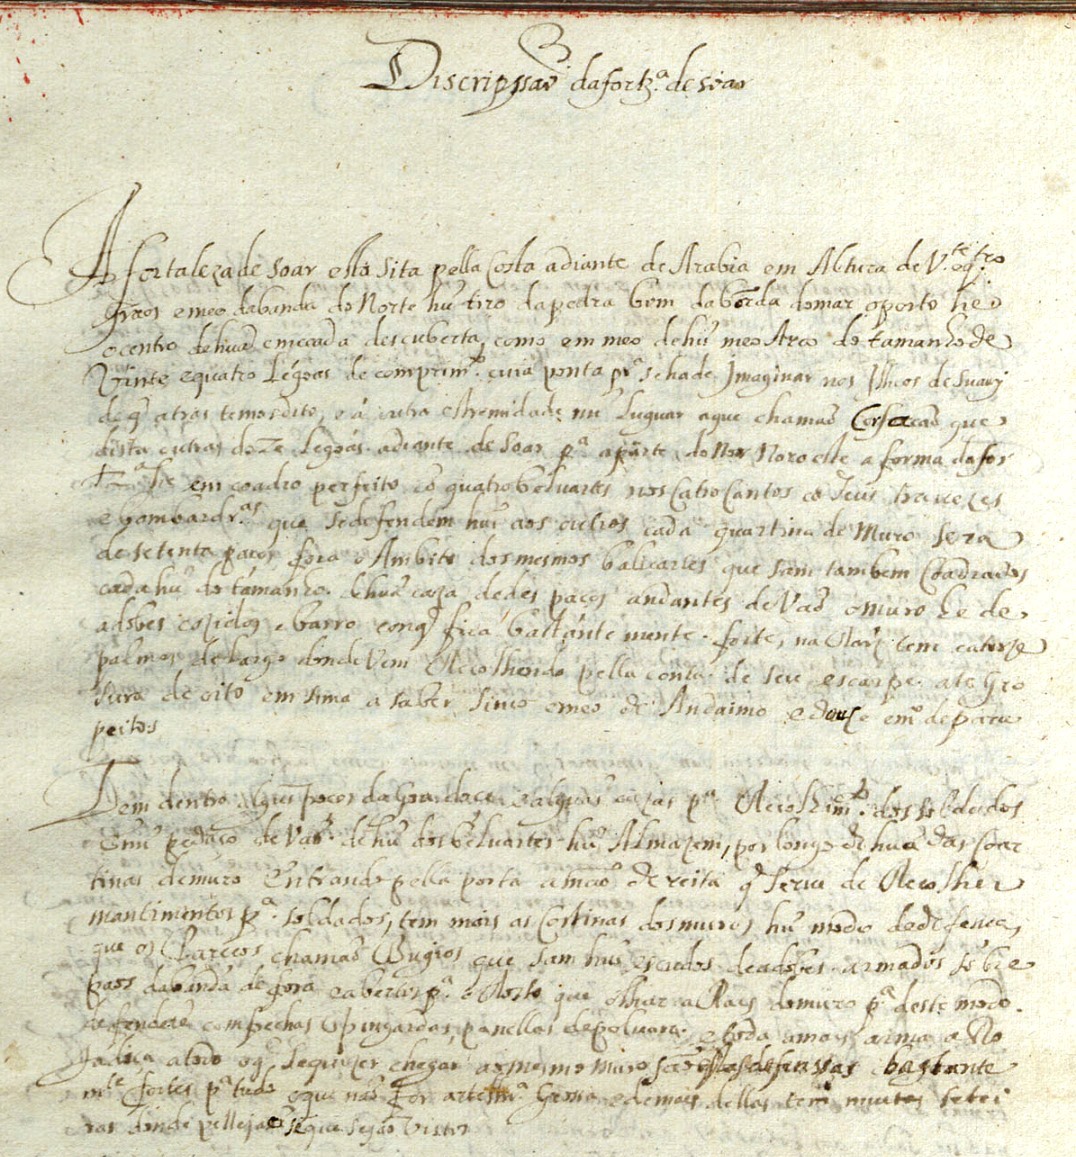 Discripssão da fortz.ª de soar
A fortaleza de soar está sita pella Costa adiante de Arabia em Altura de V.te e q.tro
graos e meo da banda do Norte hũ tiro da pedra bom da borda do mar o porto he
o centro de huã emceada descuberta, como em meo de hũ meo Arco do tamanho de
Vinte e quatro Legoas de comprim.to cuia ponta pr.ª se ha de Imaginar nos Ilheos de Suady
de q̃ atras temos dito, e a outra estremidade nũ Luguar a que chamaõ Corfacaõ que
dista outras doze Legoas adiante de Soar p.ª a parte do Nor Noroeste a forma da for
tz.ª he em coadro perfeito cõ quatro beluartes nos Catro Cantos cõ seus trauezes
e bombardr.as que se defendem hũs aos outros cada quartina de Muro sera
de setenta paços fora o Ambito dos mesmos baluartes que sam tambem Coadrados
cada hũ do tamanho de huã caza de des paços andantes de Vaõ o muro he de
adobes cozidos e barro con q̃ fica bastantemente forte, na Raiz tem catorze
palmos de Largo donde Vem Recolhendo pella conta de seu escarpe ate Gro
sura de oito em sima a saber sinco e meo de Andaimo e dous e m.º de para
peitos
Tem dentro alguns poços da Goa doce e alguãs cazas p.ª Recolhim.to dos soldados
E num pedaço de Vaõ de hũ dos beluartes hũ Almazem, por longo de huã das Coar
tinas de muro Entrando pella porta a mão dereita q̃ serue de Recolher
mantimentos p.ª soldados, tem mais as Cortinas dos muros hũ modo de defença
que os Parceos chamaõ Bugios que sam hũs escudos de adobes armados sobre
paos da banda de fora e abertos p.ª o Rosto que olha a Raiz do muro p.ª deste modo
defenderẽ com frechas espingardas panellas de poluora e toda a mais arma a Ro
Jadica a todo o q̃ se quizer chegar ao mesmo muro saõ estas defensas bastante
m.te fortes p.ª tudo o que naõ for artelhr.ª Grossa e demais dellas tem muitas setei
ras donde pellejaõ sẽ que sejaõ Vistos